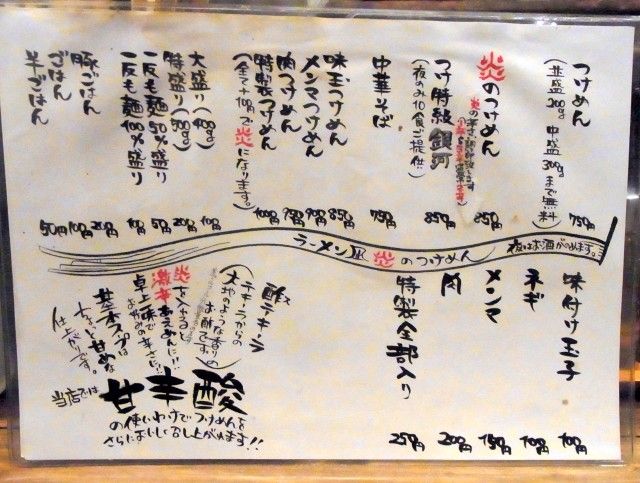 つけめん
(並盛200g 中盛300gまで無料)
750円
炎のつけめん
850円
つけ特級 銀河
(夜のみ10食ご提供!!)
850円
中華そば
750円
味玉つけめん
850円
メンマつけめん
900円
肉つけめん
特製つけめん
1000円
(全て+100円で炎になります。)
大盛り(400g)
100円
特盛り(500g)
200円
一反も麺50%盛り
50円
一反も麺100%盛り
100円
豚ごはん
200円
ごはん
100円
半ごはん
50円
夜はお酒がのめます。
ラーメン 炎のつけめん
味付け玉子
100円
ネギ
100円
メンマ
150円
肉
200円
特製全部入り
250円
酢テキーラ
(テキーラからの
大地のような香りの
お酢です。)
卓上味で
お好みの辛さに!!
基本スープは
ちょっと甘めな
仕上がりです。
当店では
甘辛酸
の使いわけでつけめんを
さらにおいしくめし上がれます!!